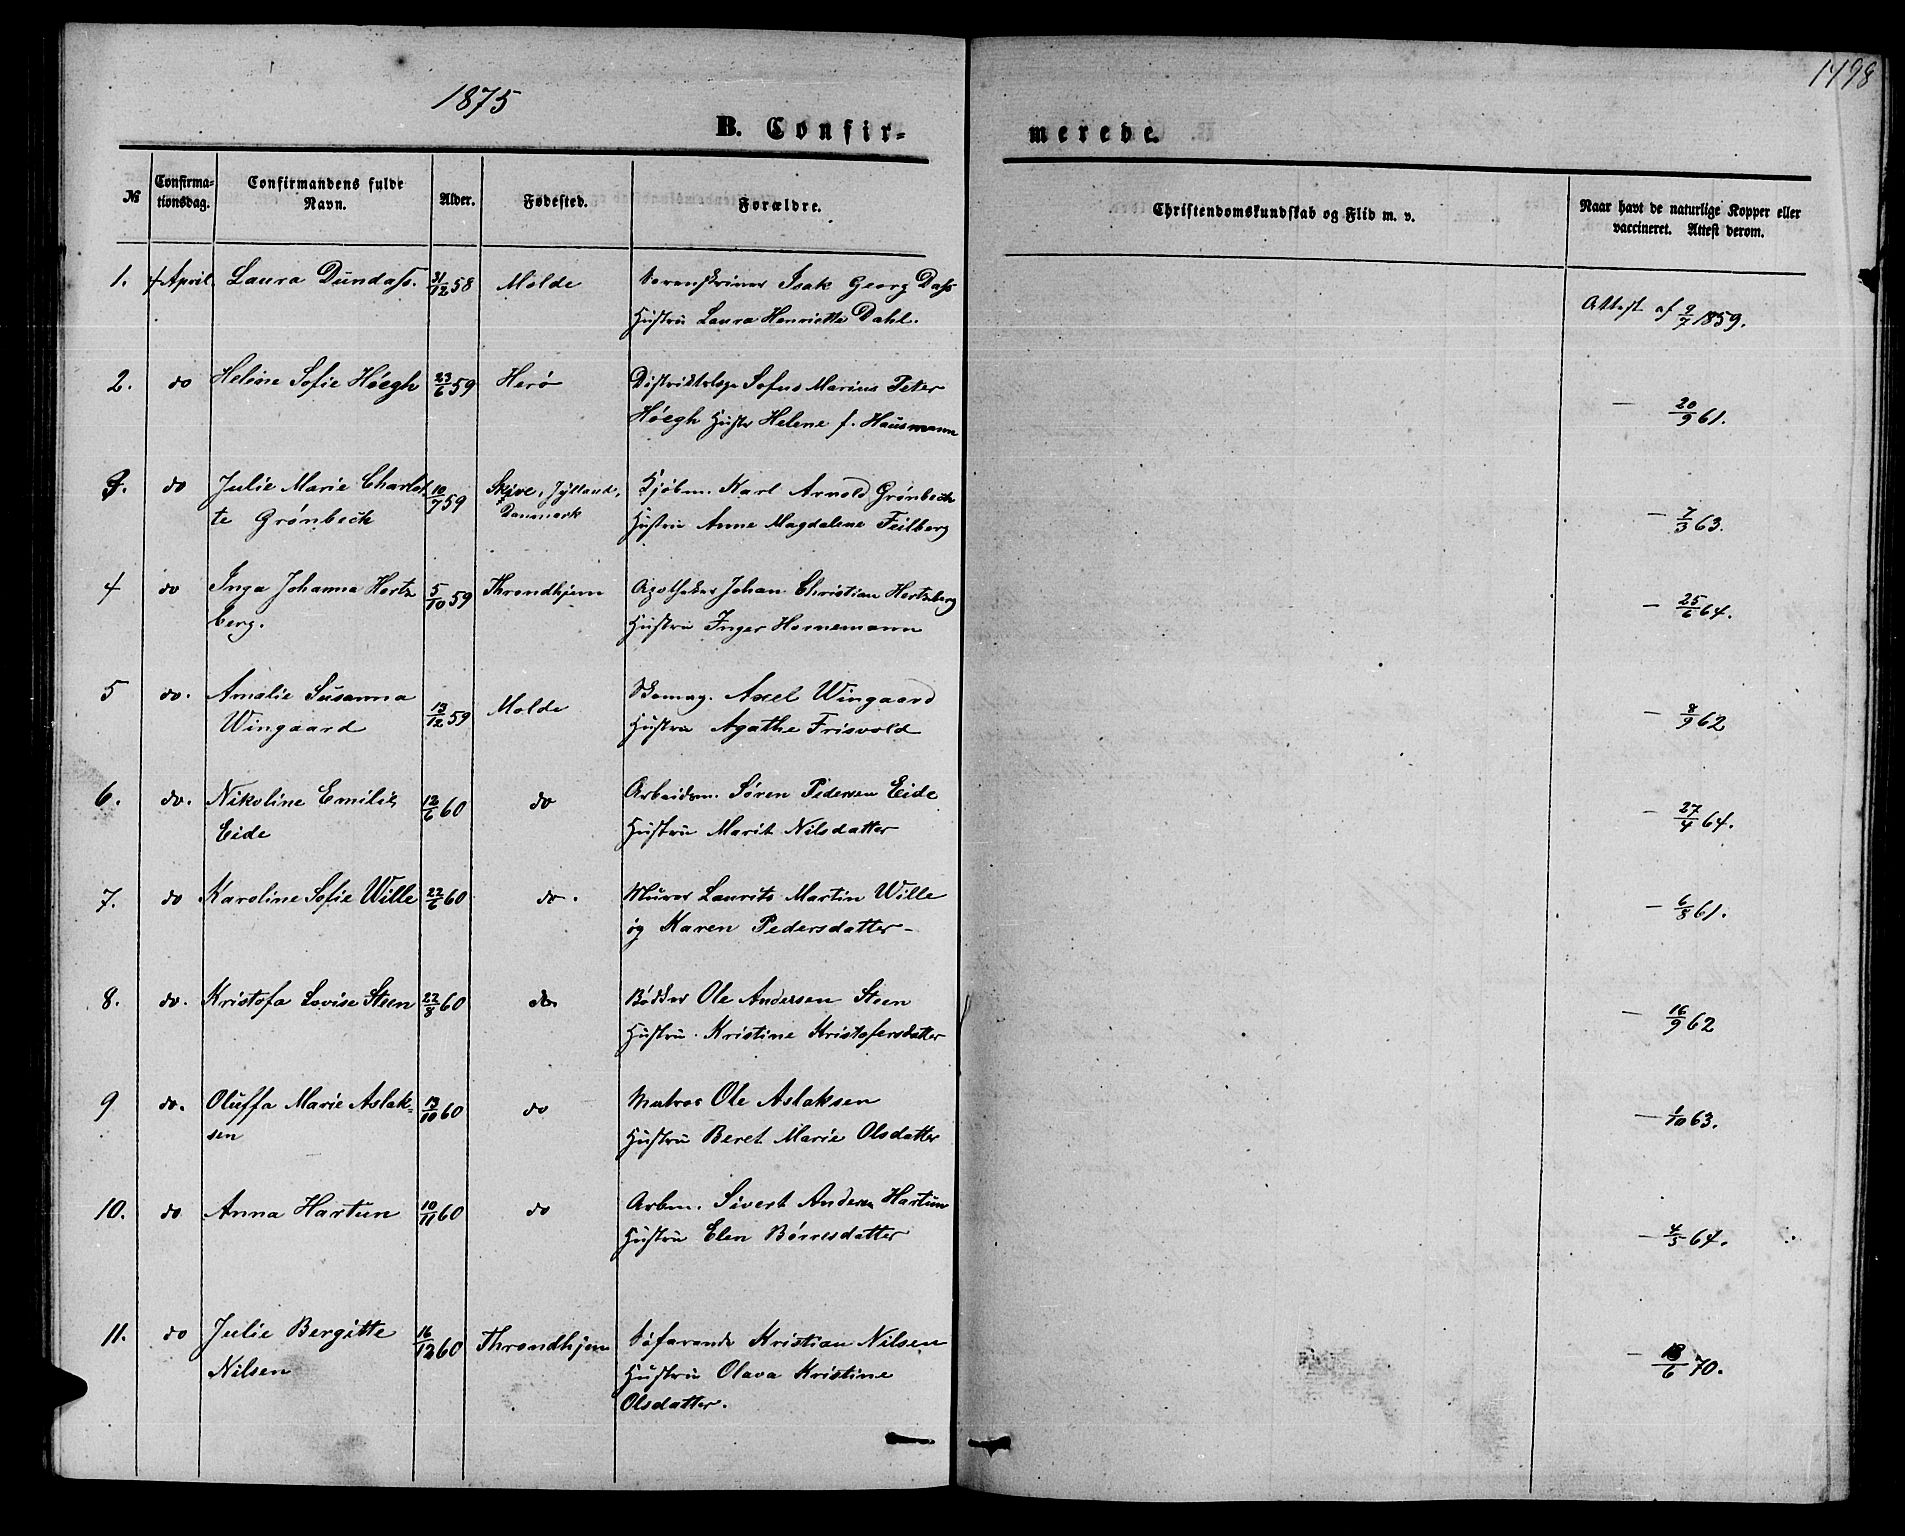 1498
1875
B. Confir-
merede.
№ Confirma-
tionsdag. Confirmandens fulde
Navn. Alder. Fødested. Forældre. Christendomskundskab og Flid m. v. Naar havt de naturlige Kopper eller
vaccineret. Attest derom.
1. 4 April. Laura Dundass. 31/12 58 Molde Sorenskriver Isak Georg Dass
Hustru Laura Henriette Dahl. Attest af 9/7 1859.
2. do Helene Sofie Høegh 23/6 59 Herø Distriktslæge Sofus Marius Peter
Høegh Hustr Helene f. Hausmann — 20/9 61.
3. do Julie Marie Charlot
te Grønbech 10/7 59 Skive, Jylland,
Danmark Kjøbm. Karl Arnold Grønbech
Hustru Anne Magdalene Feilberg — 7/3 63.
4 do Inga Johanna Hertz
berg. 5/10 59 Throndhjem Apotheker Johan Christian Hertzberg
Hustru Inger Hornemann — 25/6 64.
5 do. Amalie Susanna
Wingaard 13/12 59 Molde Skomag. Axel Wingaard
Hustru Agathe Frisvold — 8/9 62
6. do. Nikoline Emilie
Eide 12/6 60 do Arbeidsm. Søren Pedersen Eide
Hustru Marit Nilsdatter — 27/4 64.
7. do Karoline Sofie Wille 22/6 60 do. Murer Laurits Martin Wille
og Karen Pedersdatter — 6/8 61.
8. do. Kristofa Lovise Steen 22/8 60 do Bødker Ole Andersen Steen
Hustru Kristine Kristofersdatter — 16/9 62
9 do. Oluffa Marie Aslak-
sen 13/10 60 do Matros Ole Aslaksen
Hustru Beret Marie Olsdatter — 1/10 63.
10. do Anna Hartun 10/11 60 do Arbm. Sivert Andersen Hartun
Hustru Elen Børresdatter — 4/5 64.
11. do Julie Bergitte
Nilsen 16/12 60 Throndhjem Søfarende Kristian Nilsen
Hustru Olava Kristine
Olsdatter. — 18/6 70.